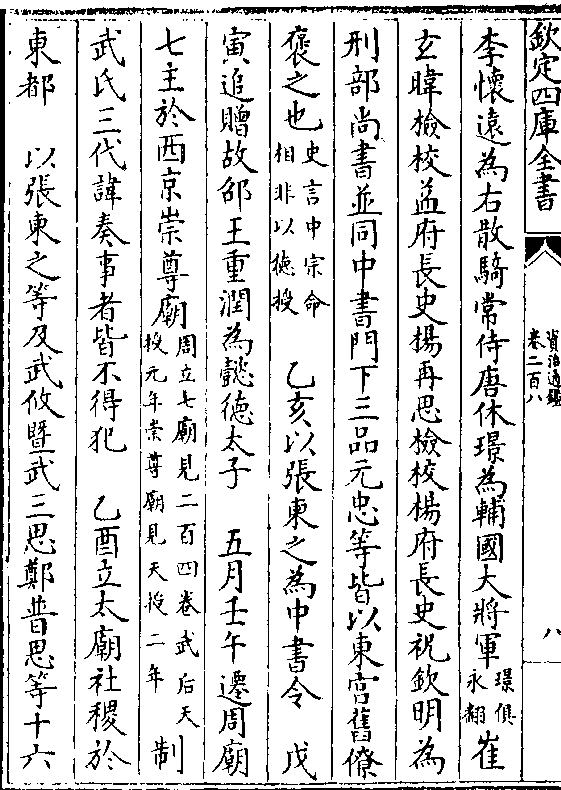 欽定四庫全書 資治通鑑 卷二百八 八
李懷遠為右散騎常侍唐休璟為輔國大將軍璟俱永翻崔
玄暐檢校益府長史楊再思檢校楊府長史祝欽明為
刑部尚書並同中書門下三品元忠等皆以東宫舊僚
褒之也史言中宗命相非以徳授 乙亥以張柬之為中書令 戊
寅追贈故邵王重潤為懿德太子 五月壬午遷周廟
七主於西京崇尊廟周立七廟見二百四卷武后天授元年崇尊廟見天授二年 制
武氏三代諱奏事者皆不得犯 乙酉立太廟社稷於
東都 以張柬之等及武攸暨武三思鄭普思等十六